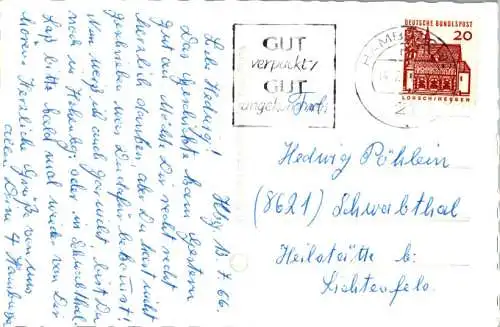 Hbg. 13.7.66.
Liebe Hedwig!
Das Geschäftle kam gestern
gut an. Möchte Dir recht
herzlich danken, aber Du hast nicht
geschrieben was Du dafür bekommst!
Nun weiß ich auch gar nicht, bist Du
noch in Heilanstalt, oder in Schwabthal
Laß bitte bald mal wieder von Dir
hören. Herzliche Grüße von uns
allen Deine 4 Hamburger
GUT
verpackt
GUT
HAMBURG
DEUTSCHE BUNDESPOST
20
LORSCH/HESSEN
Frl.
Hedwig Pöhlein
(8621) Schwabthal
Heilstätte b.
Lichtenfels.